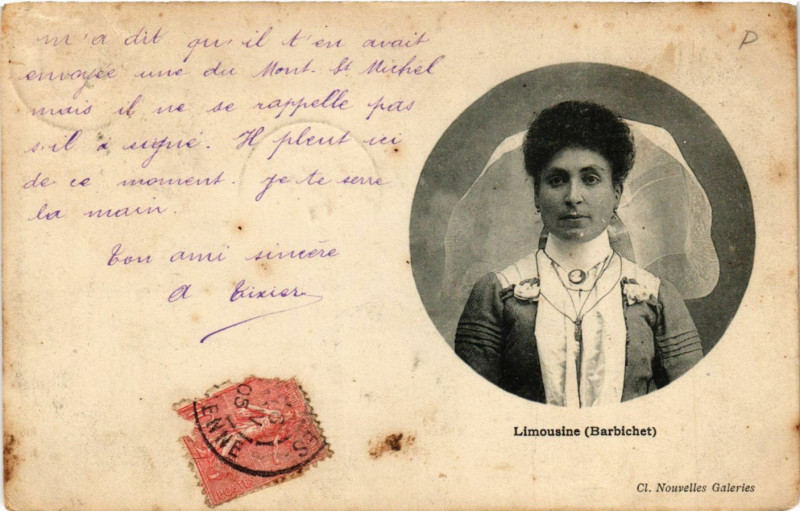 m'a dit qu'il t'en avait
envoyée une du Mont. St Michel
mais il ne se rappelle pas
s'il a signé. Il pleut ici
de ce moment. je te serre
la main.
Ton ami sincère
A Tixier
P
ENNE
Limousine (Barbichet)
Cl. Nouvelles Galeries